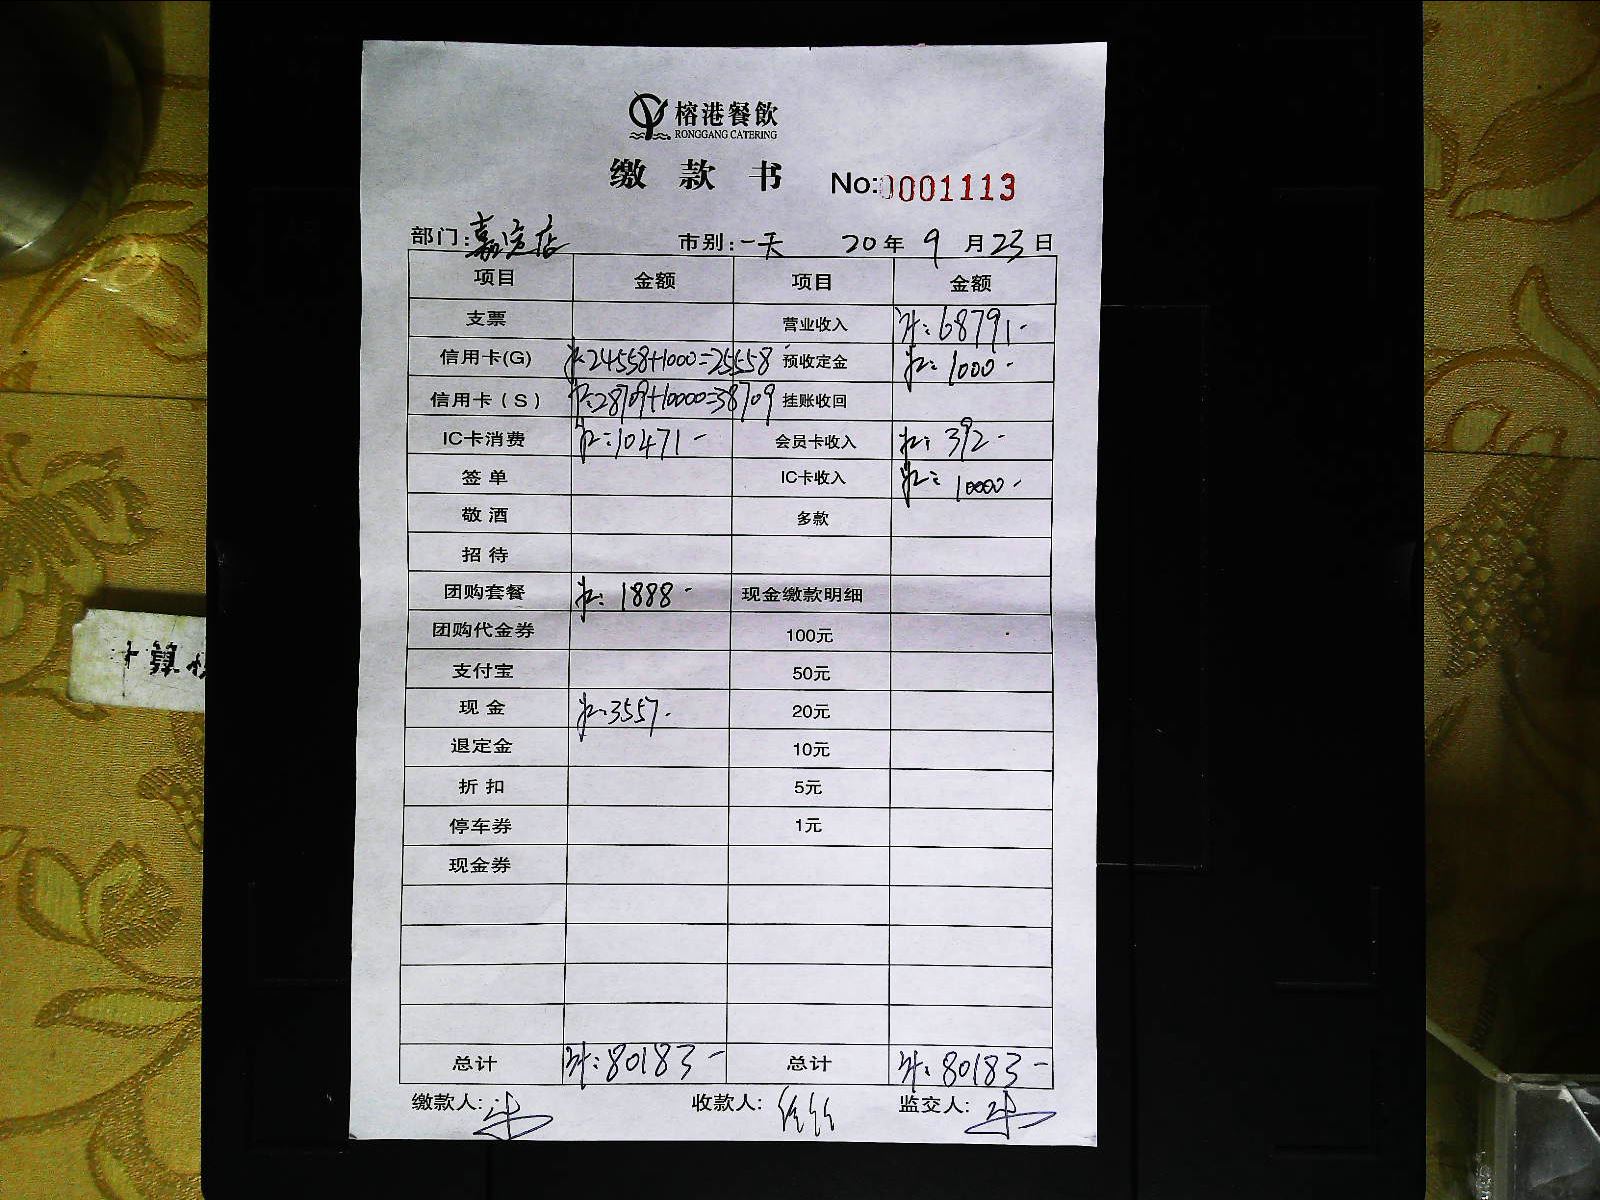 榕港餐飲
RONGGANG CATERING
缴款书 No:0001113
部门:嘉定店 市别:一天 20年9月23日
项目 金额 项目 金额
支票 营业收入 计:68791-
信用卡(G) 24558+1000=25558 预收定金 1000-
信用卡(S) 28709+10000=38709 挂账收回
IC卡消费 10471- 会员卡收入 392-
签单 IC卡收入 10000-
敬酒 多款
招待
团购套餐 1888- 现金缴款明细
团购代金券 100元
支付宝 50元
现金 3557- 20元
退定金 10元
折扣 5元
停车券 1元
现金券
总计 计:80183- 总计 计:80183-
缴款人: 收款人: 监交人: